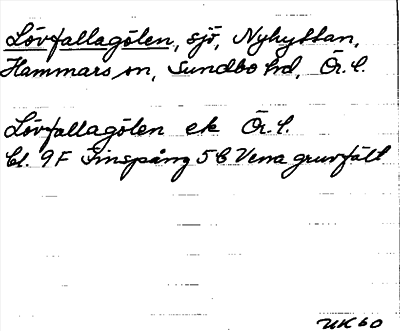 Lövfallagölen, sjö, Nyhyttan,
Hammars sn, Sundbo hd, Ör. l.
Lövfallagölen ek Ör. l.
Bl. 9F Finspång 5C Vena gruvfält
UK 60